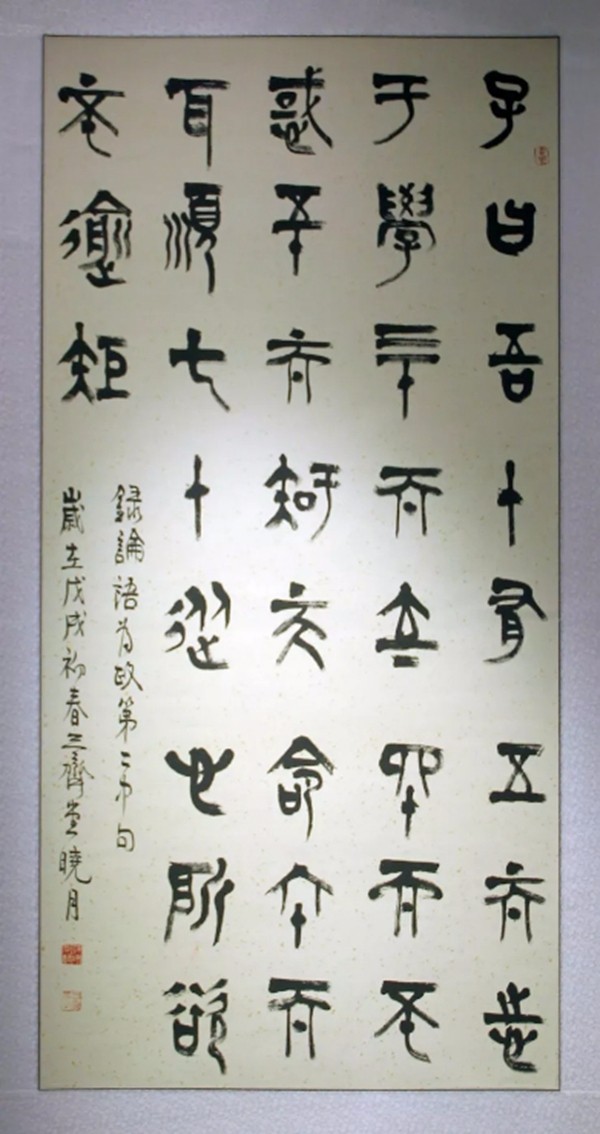 子曰吾十有五而志
于學三十而立四十而不
惑五十而知天命六十而
耳順七十從心所欲
不踰矩
錄論語為政第二中句
歲在戊戌初春三齊堂曉月